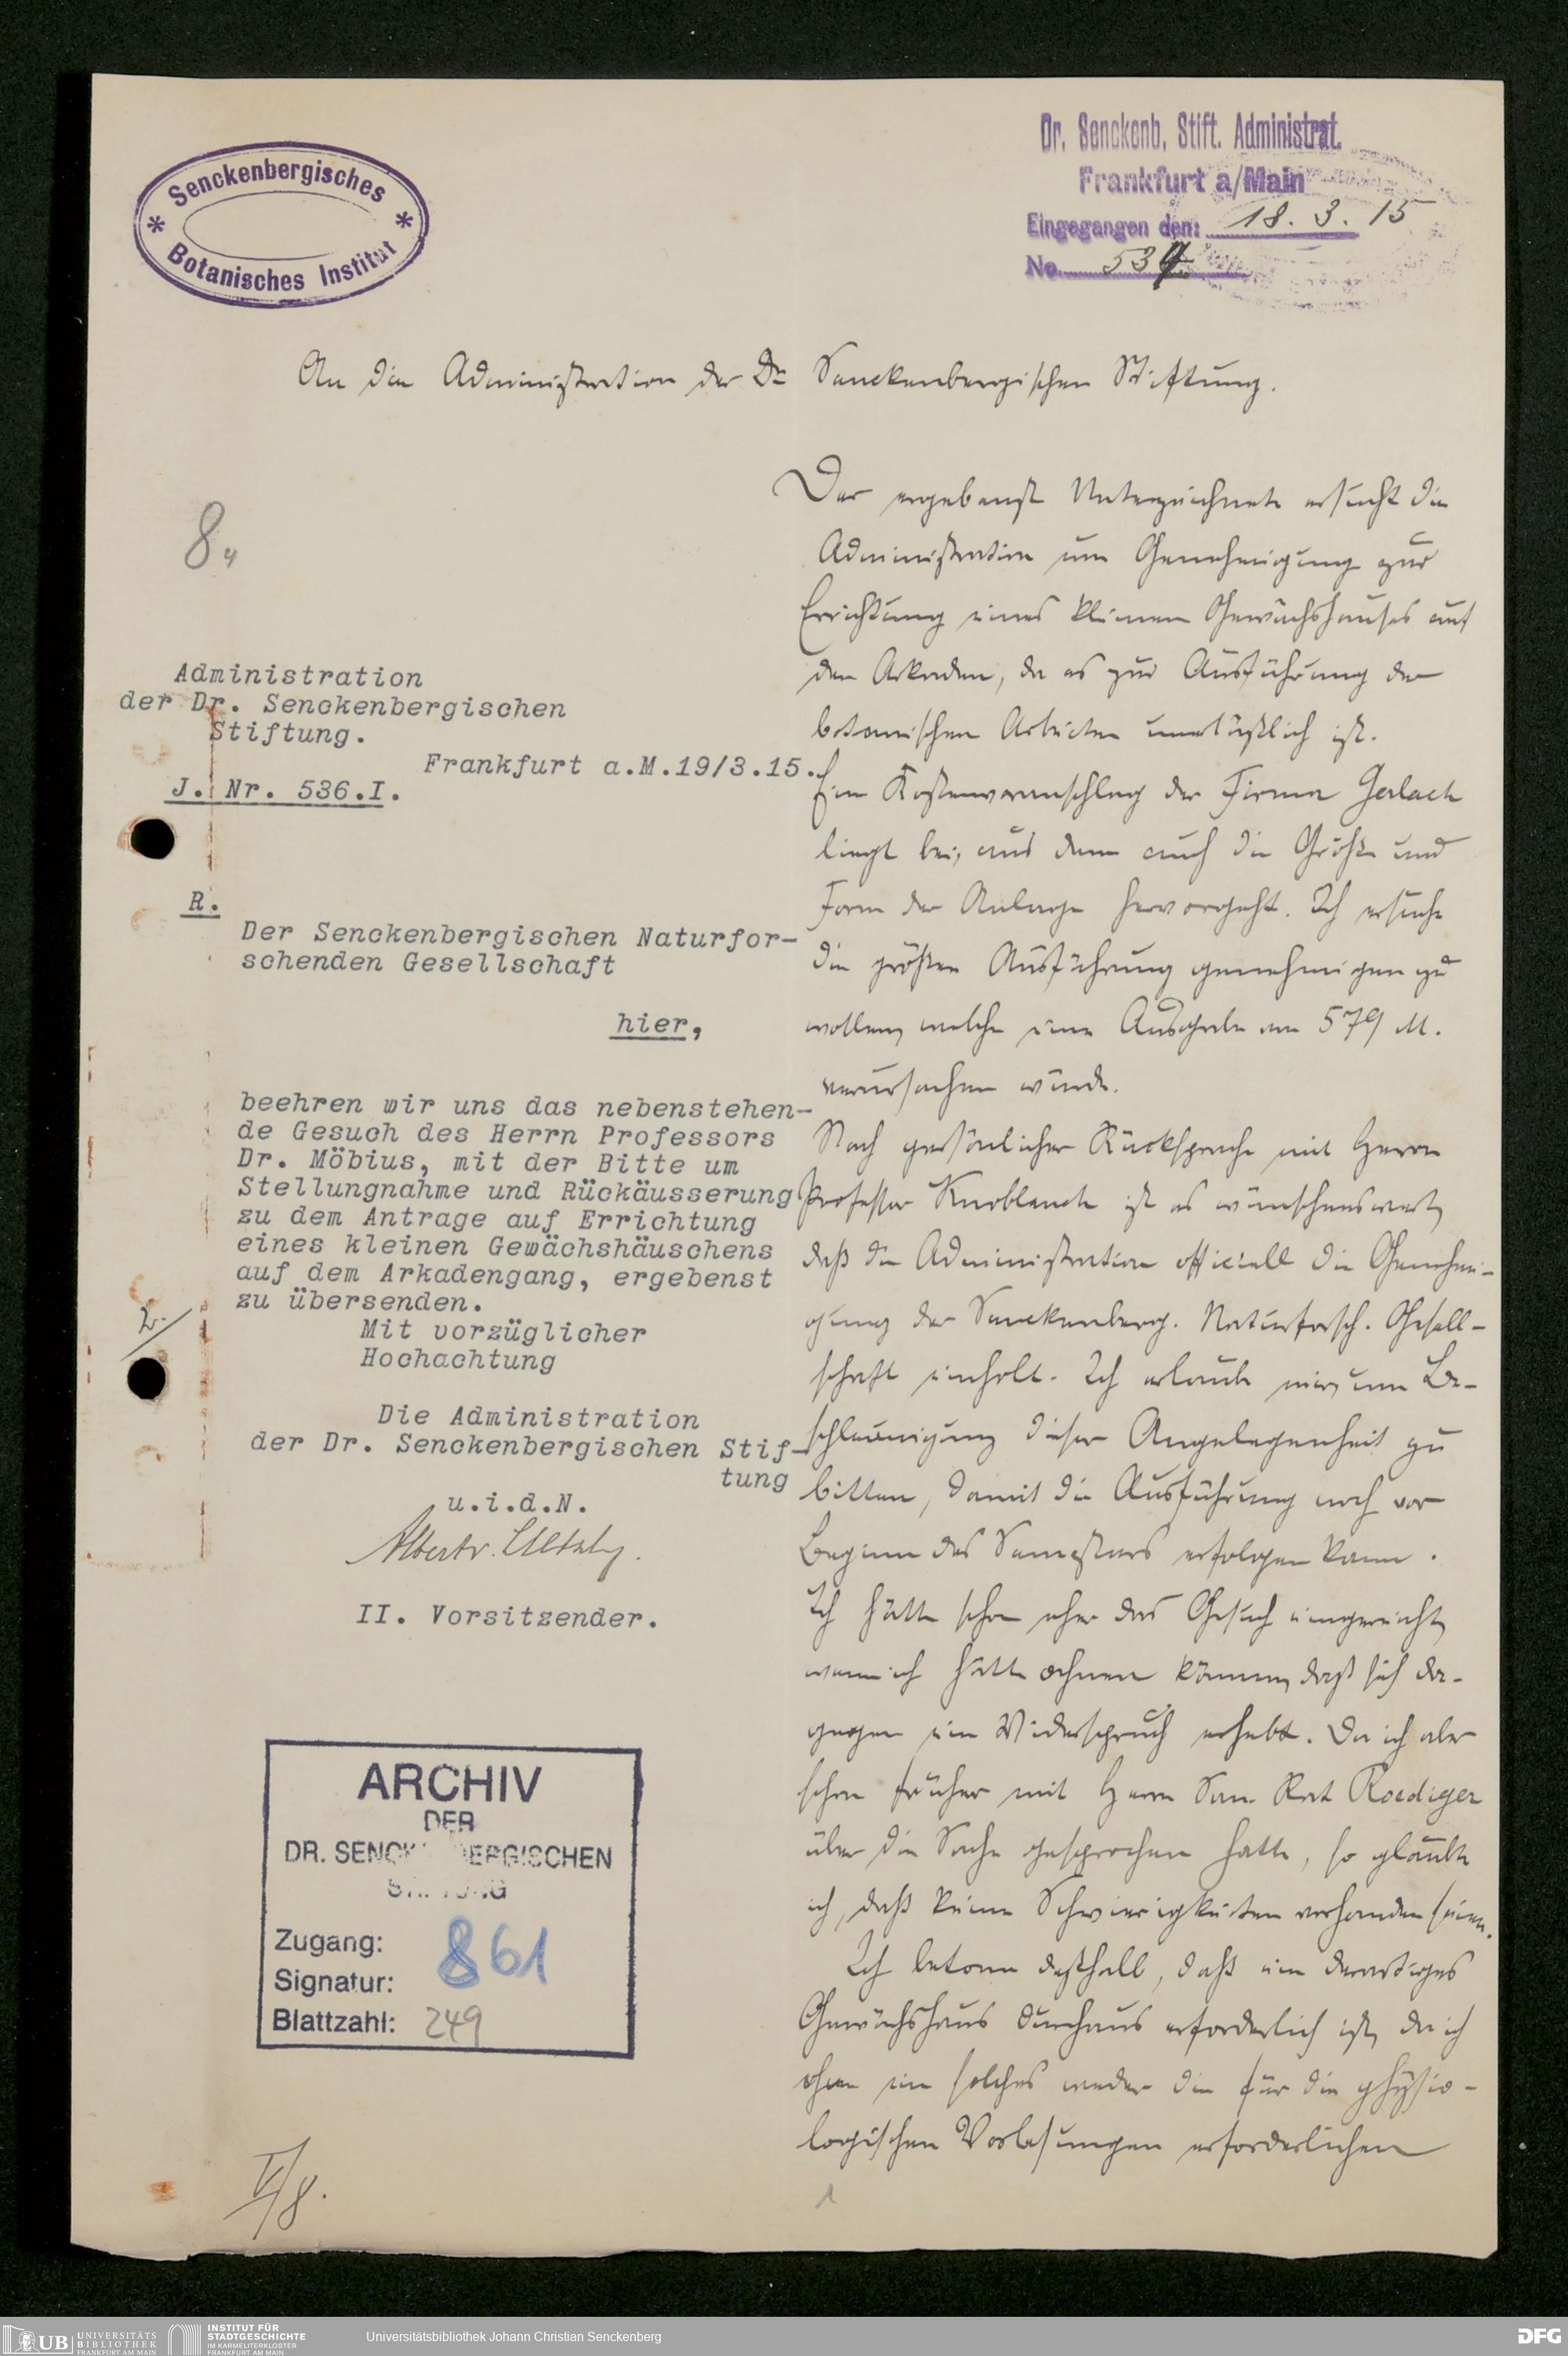 Senckenbergisches
* *
Botanisches Institut
Dr. Senckenb. Stift. Administrat.
Frankfurt a/Main
Eingegangen den: 18. 3. 15
No. 537
An die Administration der Dr Senckenbergischen Stiftung.
8.
Administration
der Dr. Senckenbergischen
Stiftung.
Frankfurt a.M.19/3.15.
J. Nr. 536.I.
R.
Der Senckenbergischen Naturfor-
schenden Gesellschaft
hier,
beehren wir uns das nebenstehen-
de Gesuch des Herrn Professors
Dr. Möbius, mit der Bitte um
Stellungnahme und Rückäusserung
zu dem Antrage auf Errichtung
eines kleinen Gewächshäuschens
auf dem Arkadengang, ergebenst
zu übersenden.
Mit vorzüglicher
Hochachtung
Die Administration
der Dr. Senckenbergischen Stif-
tung
u.i.d.N.
Albert v.
II. Vorsitzender.
Der ergebenst Unterzeichnete ersucht die
Administration um Genehmigung zur
Errichtung eines kleinen Gewächshauses auf
den Arkaden, da es zur Ausführung der
botanischen Arbeiten unerläßlich ist.
Ein Kostenvoranschlag der Firma Gerlach
liegt bei, aus dem auch die Größe und
Form der Anlage hervorgeht. Ich ersuche
die größere Ausführung genehmigen zu
wollen, welche eine Ausgabe von 579 M.
verursachen würde.
Nach persönlicher Rücksprache mit Herrn
Professor Knoblauch ist es wünschenswert,
daß die Administration officiell die Genehmi-
gung der Senckenberg. Naturforsch. Gesell-
schaft einholt. Ich erlaube mir, um Be-
schleunigung dieser Angelegenheit zu
bitten, damit die Ausführung noch vor
Beginn des Semesters erfolgen kann.
Ich hätte schon eher das Gesuch eingereicht,
wenn ich hätte ahnen können, daß sich da-
gegen ein Widerspruch erhebt. Da ich aber
schon früher mit Herrn San. Rat Roediger
über die Sache gesprochen hatte, so glaubte
ich, daß keine Schwierigkeiten vorhanden seien.
Ich betone deßhalb, daß ein derartiges
Gewächshaus durchaus erforderlich ist, da ich
ohne ein solches weder die für die physio-
logischen Vorlesungen erforderlichen
ARCHIV
DER
DR. SENCKENBERGISCHEN
STIFTUNG
Zugang:
Signatur: 861
Blattzahl: 249
V/8.
1
UB UNIVERSITÄTS
BIBLIOTHEK
FRANKFURT AM MAIN
INSTITUT FÜR
STADTGESCHICHTE
IM KARMELITERKLOSTER
FRANKFURT AM MAIN
Universitätsbibliothek Johann Christian Senckenberg
DFG